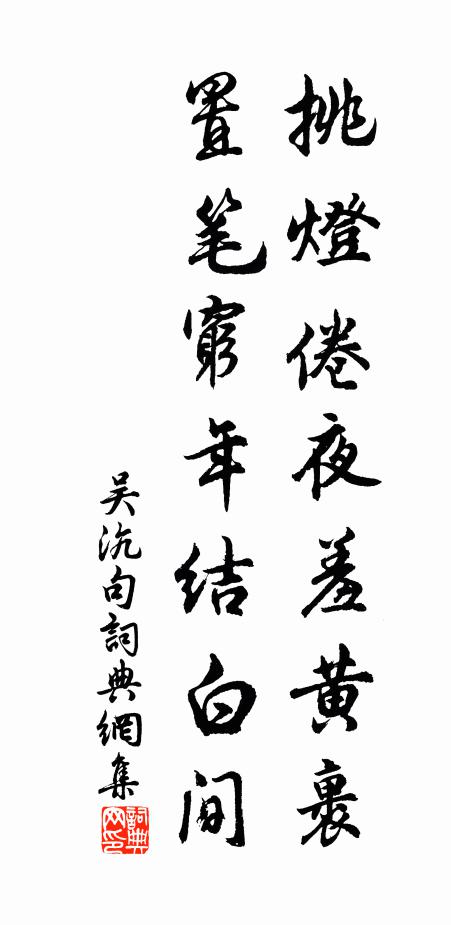 挑燈倦夜羞黄裹
置笔窮年結白間
吴沆句詞典網集
詞典网印